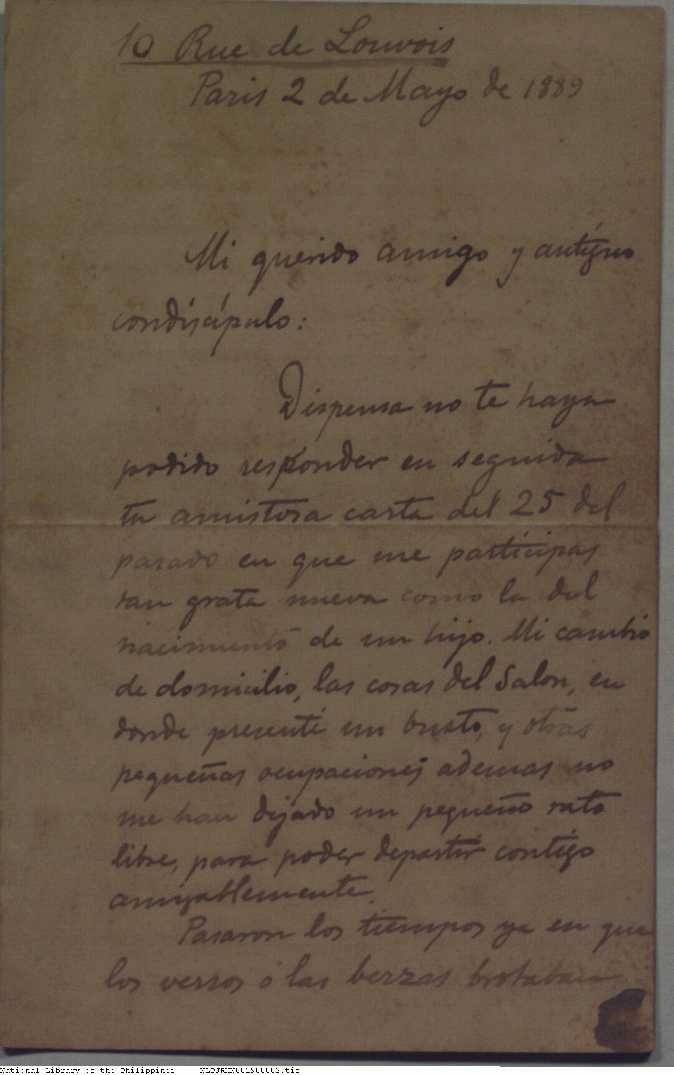 10 Rue de Louvois
Paris 2 de Mayo de 1889
Mi querido amigo y antíguo
condiscípulo:
Dispensa no te haya
podido responder en seguida
tu amistosa carta del 25 del
pasado en que me participas
tan grata nueva como la del
nacimiento de un hijo. Mi cambio
de domicilio, las cosas del Salon, en
donde presenté un busto, y otras
pequeñas ocupaciones ademas no
me han dejado un pequeño rato
libre, para poder departir contigo
amigablemente.
Pasaron los tiempos ya en que
los versos ó las berzas brotaban
National Library of the Philippines